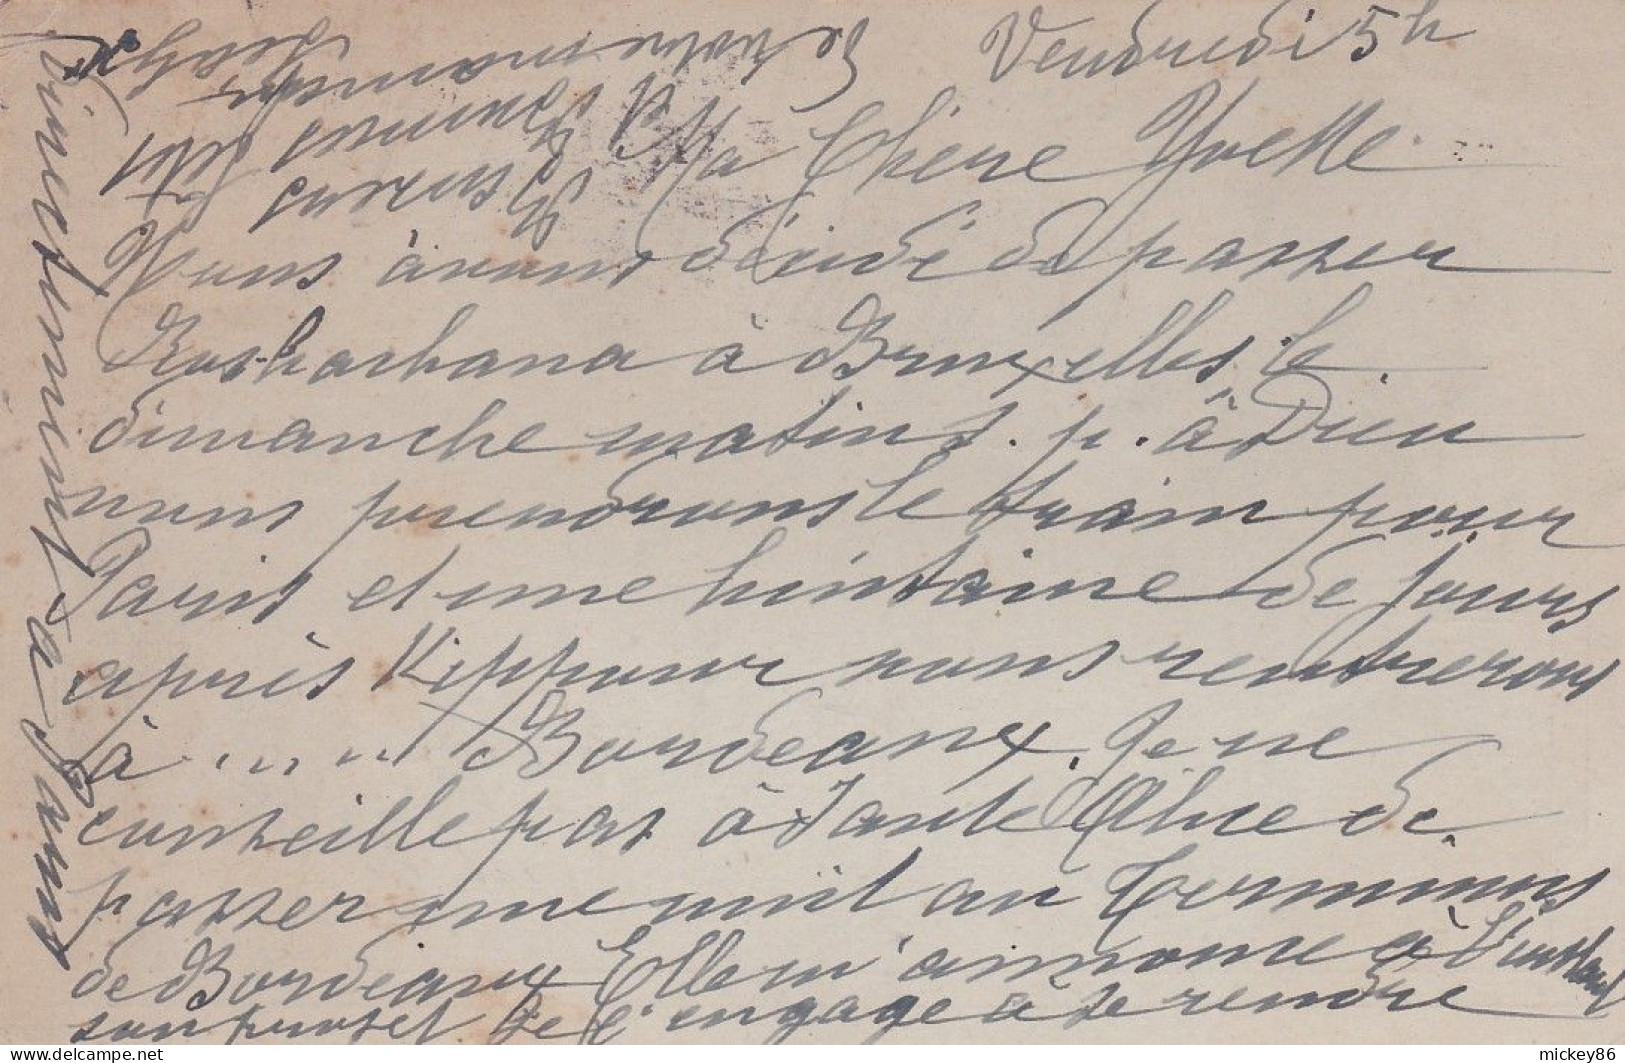 Vendredi 5h
Ma Chère Yvette
Nous avons décidé de passer
à Bruxelles, le
dimanche matin s. p. à Dieu
nous prendrons le train pour
Paris et une huitaine de jours
après Kippour nous rentrerons
à ... ... Bordeaux. Je ne
conseille pas à Tante Aline de
passer une nuit au Terminus
de Bordeaux Elle m'annonce à l'instant
son projet Je l'engage à se rendre
directement à
de votre maman
mickey86